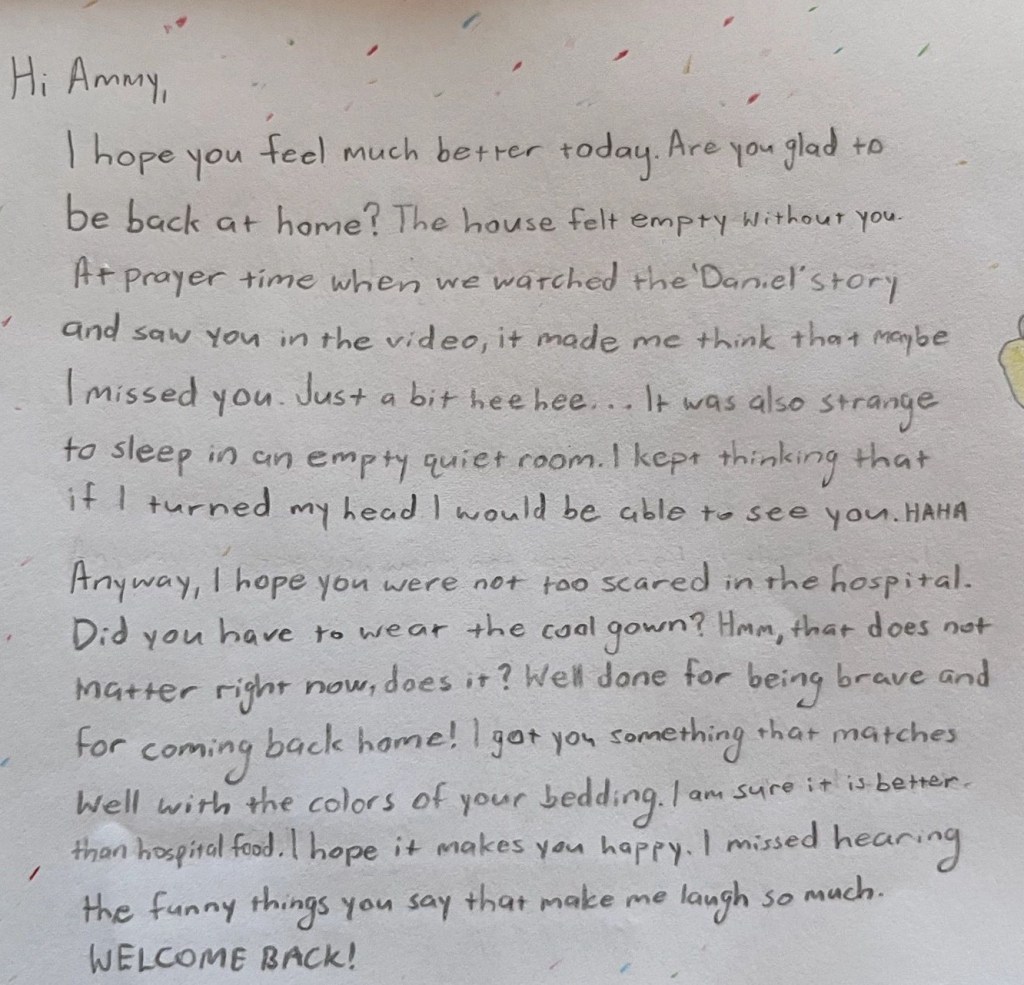 Hi Ammy,
I hope you feel much better today. Are you glad to
be back at home? The house felt empty without you.
At prayer time when we watched the 'Daniel' story
and saw you in the video, it made me think that maybe
I missed you. Just a bit hee hee... It was also strange
to sleep in an empty quiet room. I kept thinking that
if I turned my head I would be able to see you. HAHA
Anyway, I hope you were not too scared in the hospital.
Did you have to wear the cool gown? Hmm, that does not
matter right now, does it? Well done for being brave and
for coming back home! I got you something that matches
well with the colors of your bedding. I am sure it is better
than hospital food. I hope it makes you happy. I missed hearing
the funny things you say that make me laugh so much.
WELCOME BACK!